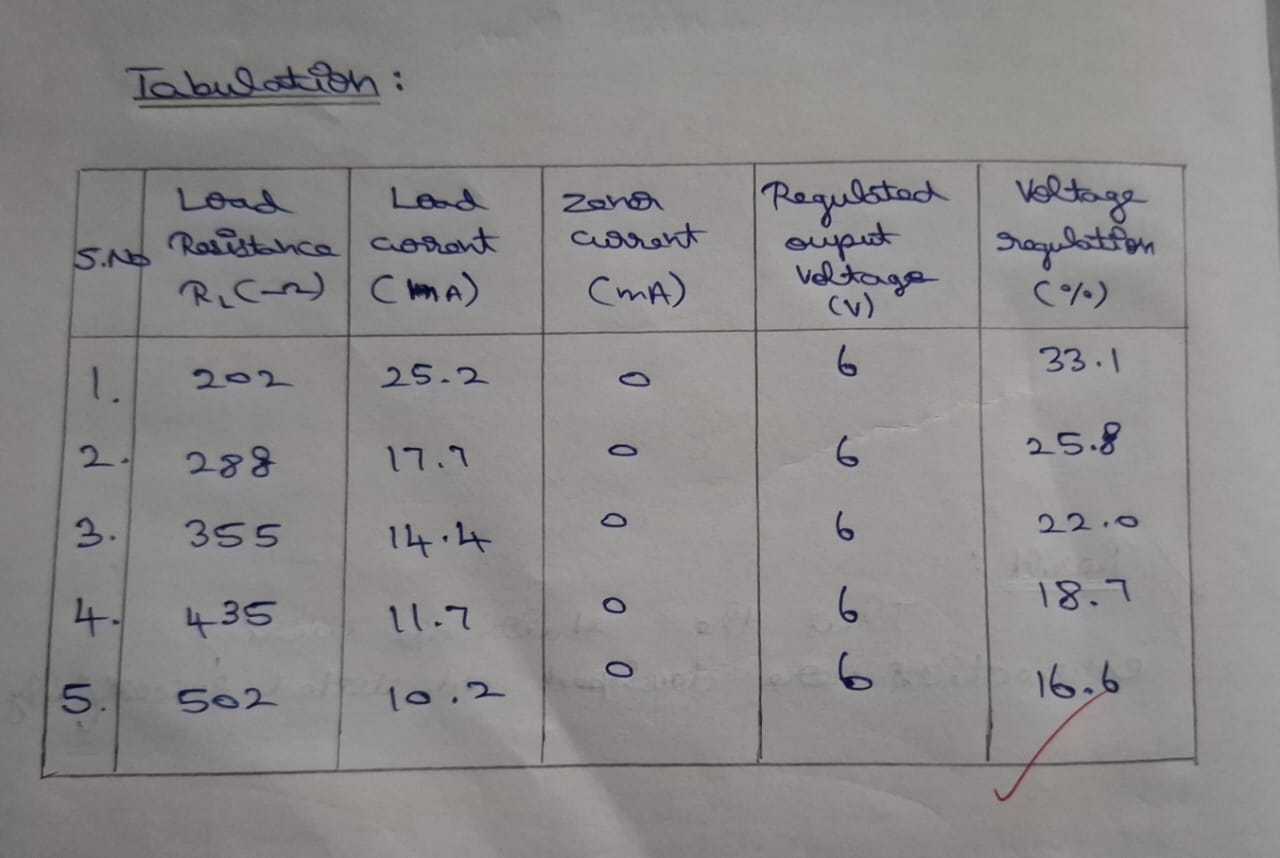 Tabulation:
S.No | Load Resistance RL (Ω) | Load current (mA) | Zener current (mA) | Regulated ouput voltage (V) | Voltage regulation (%)
1. | 202 | 25.2 | 0 | 6 | 33.1
2. | 288 | 17.7 | 0 | 6 | 25.8
3. | 355 | 14.4 | 0 | 6 | 22.0
4. | 435 | 11.7 | 0 | 6 | 18.7
5. | 502 | 10.2 | 0 | 6 | 16.6